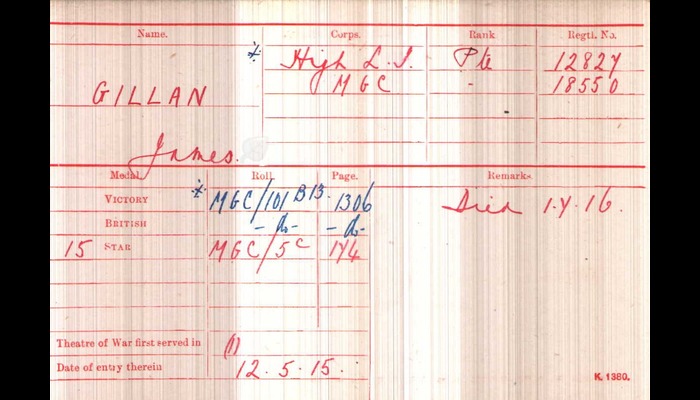 Name. Corps. Rank Regtl. No.
High L.I. Pte 12827
GILLAN MGC - 18550
James.
Medal. Roll. Page. Remarks.
VICTORY MGC/101 B13. 1306 Died 1.7.16.
BRITISH -do- -do-
15 STAR MGC/5C 174
Theatre of War first served in (1)
Date of entry therein 12.5.15.
K. 1380.